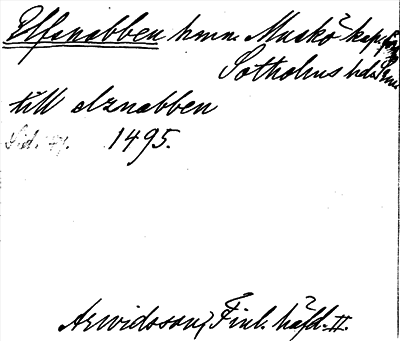 Elfsnabben hmn. Muskö kap.förs.
Sotholms hd. Sml.
till elznabben
Sid. 71. 1495.
Arwidsson, Finl. häfd. II.